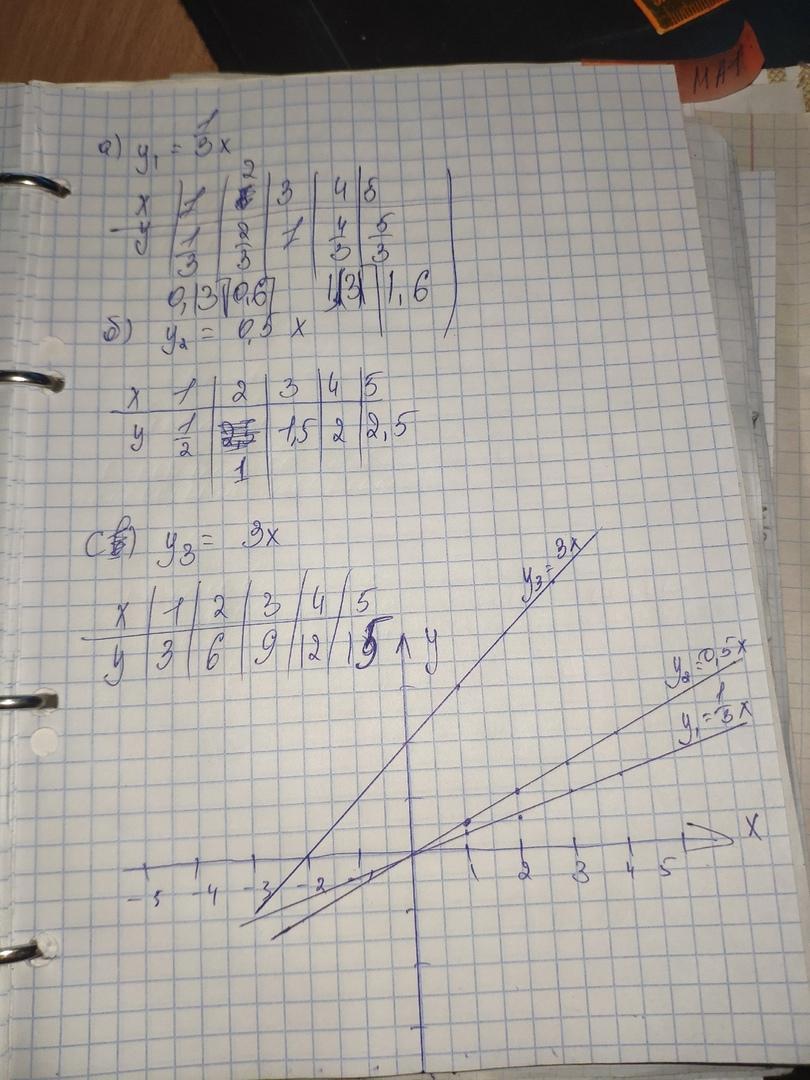 МАТ
а) y₁ = 1/3 x
x | 1 | 2 | 3 | 4 | 5
y | 1/3 | 2/3 | 1 | 4/3 | 5/3
0,(3) 0,6 1,(3) 1,6
б) y₂ = 0,5 x
x 1 | 2 | 3 | 4 | 5
y 1/2 | 1 | 1,5 | 2 | 2,5
y₃ = 3x
x | 1 | 2 | 3 | 4 | 5
y | 3 | 6 | 9 | 12 | 15
y₃ = 3x
y
y₂ = 0,5x
y₁ = 1/3 x
x
-5 -4 -3 -2 -1 1 2 3 4 5